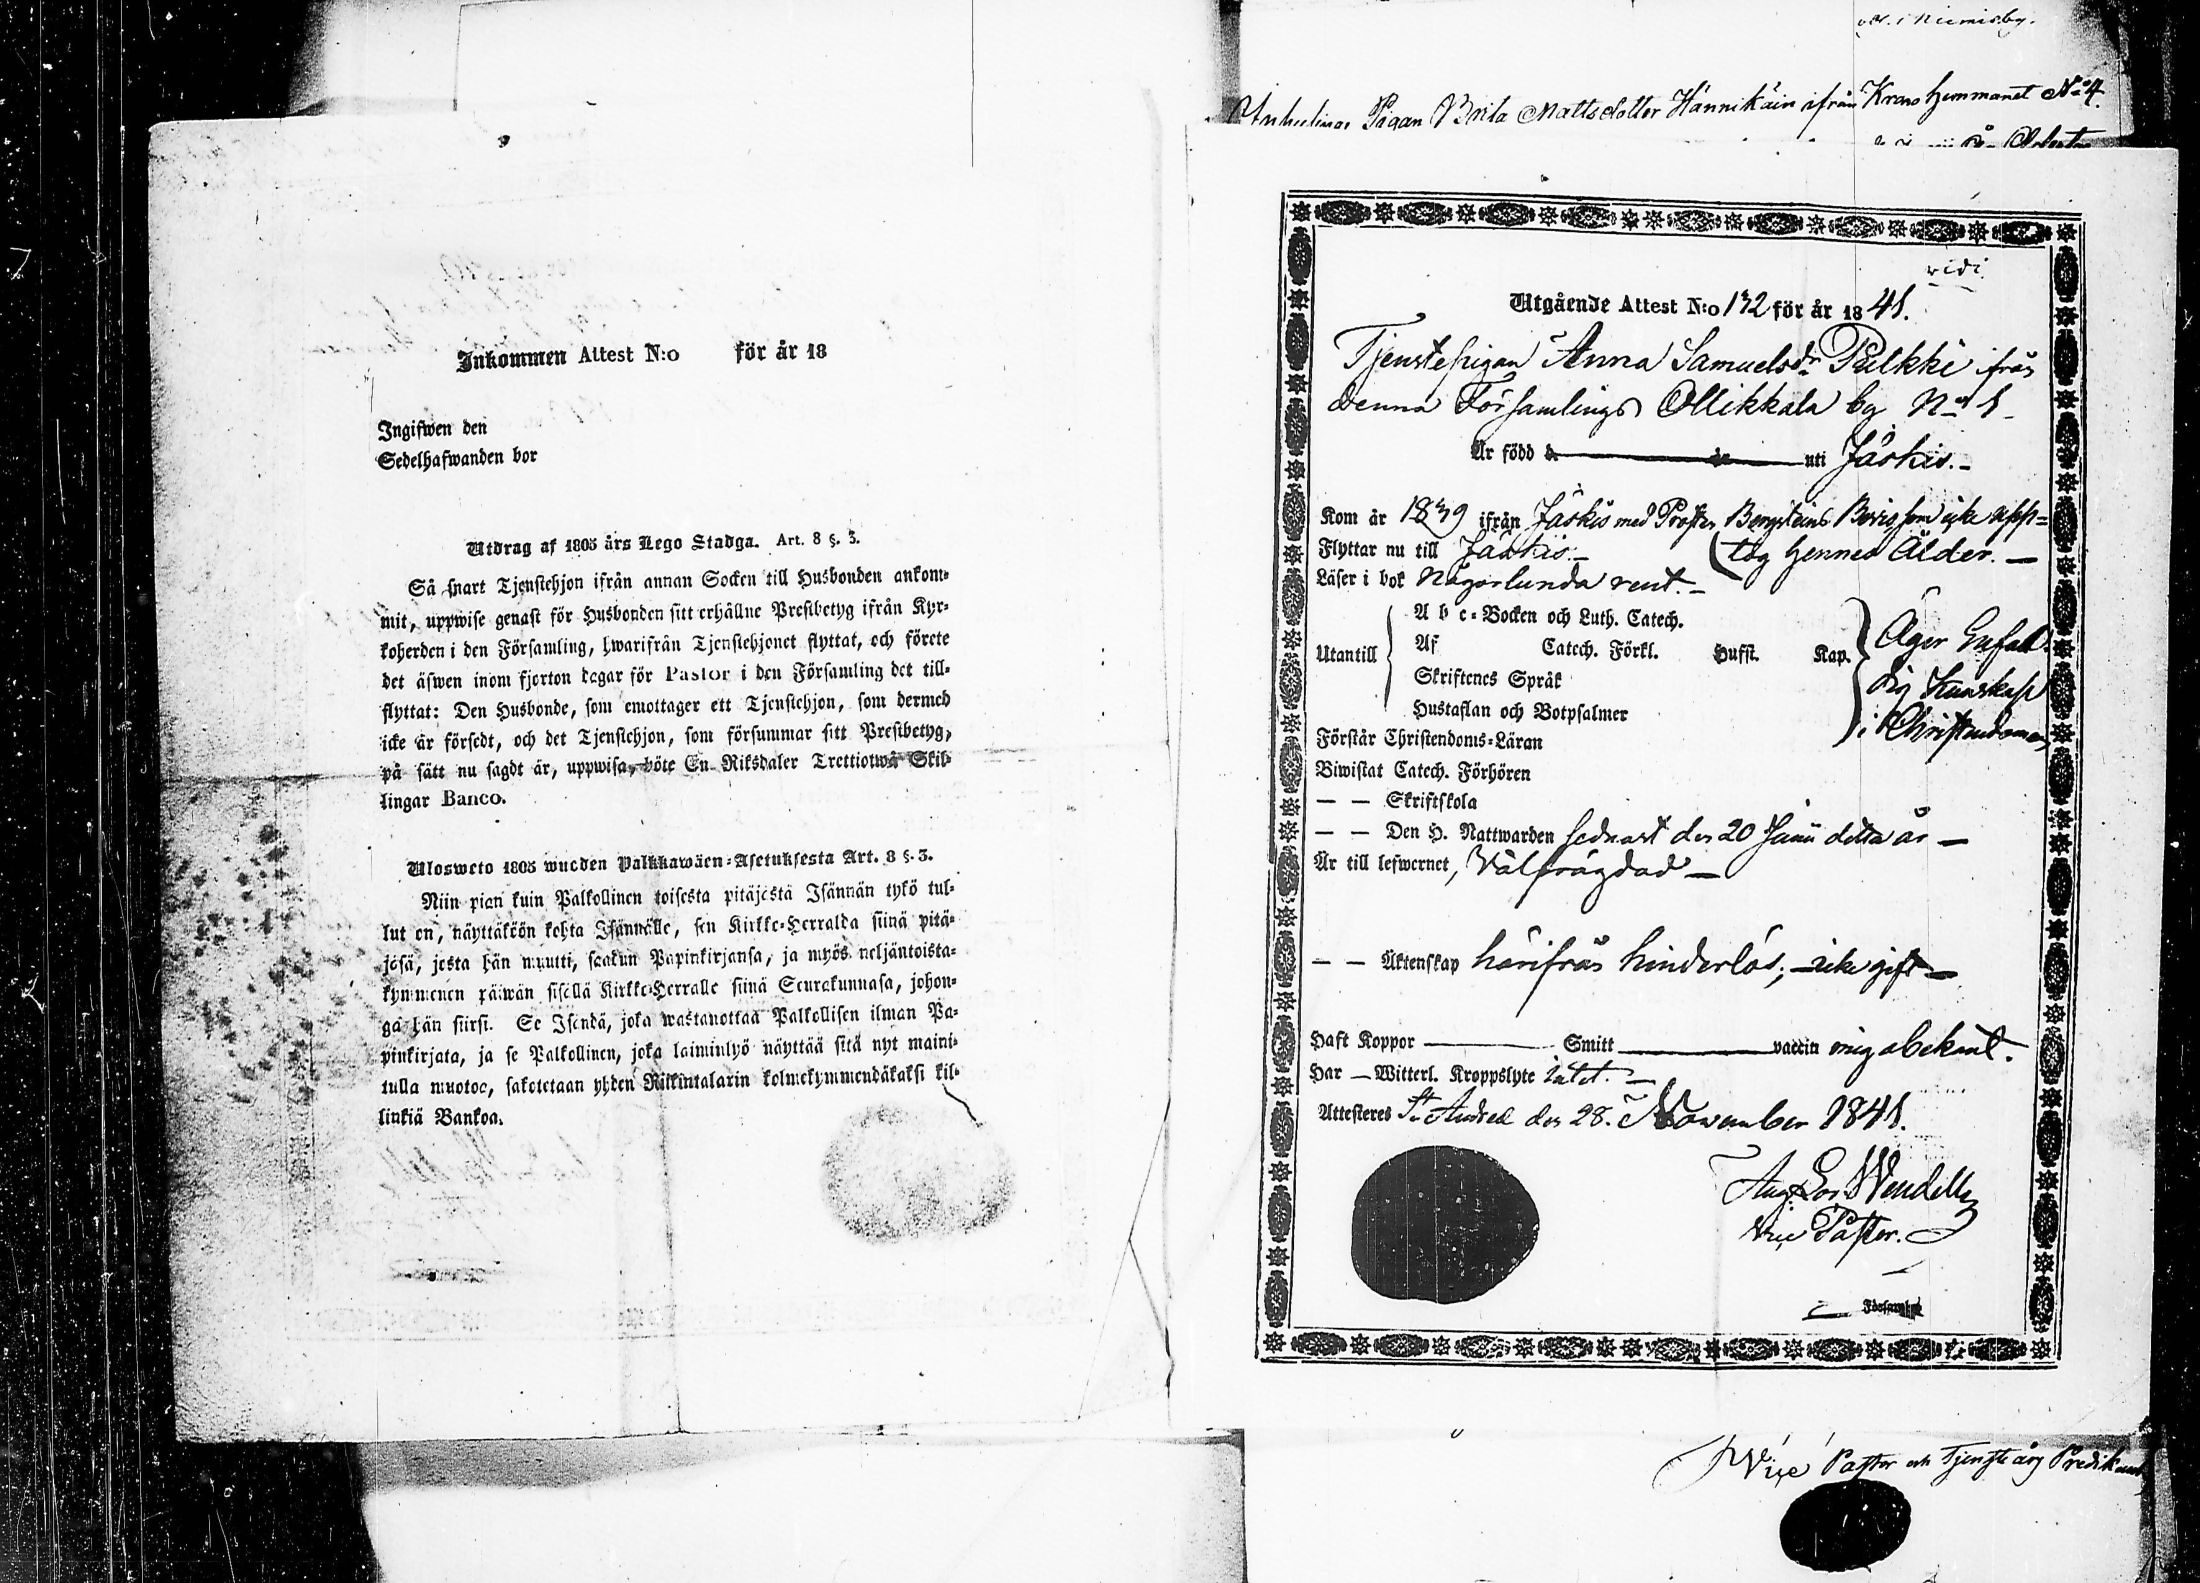 Inkommen Attest N:o för år 18
Ingifwen den
Sedelhafwanden bor
Utdrag af 1805 års Lego Stadga. Art. 8 §. 3.
Så snart Tjenstehjon ifrån annan Socken till Husbonden ankom-
mit, uppwise genast för Husbonden sitt erhållne Prestbetyg ifrån Kyr-
koherden i den Församling, hwarifrån Tjenstehjonet flyttat, och förete
det äfwen inom fjorton dagar för Pastor i den Församling det till-
flyttat: Den Husbonde, som emottager ett Tjenstehjon, som dermed
icke är försedt, och det Tjenstehjon, som försummar sitt Prestbetyg,
på sätt nu sagdt är, uppwisa, böte En Riksdaler Trettiotwå Skil-
lingar Banco.
Ulosweto 1805 wuoden Palkkawäen-Asetuksesta Art. 8 §. 3.
Niin pian kuin Palkollinen toisesta pitäjestä Isännän tykö tul-
lut on, näyttäköön kohta Isännälle, sen Kirkko-Herralda siinä pitä-
jäsä, josta hän muutti, saakun Papinkirjansa, ja myös neljäntoista-
kymmenen päiwän sisällä Kirkko-Herralle siinä Seurakunnasa, johon-
ga hän siirsi. Se Isändä, joka wastanottaa Palkollisen ilman Pa-
pinkirjata, ja se Palkollinen, joka laiminlyö näyttää sitä nyt maini-
tulla muotoo, sakotetaan yhden Riikintalarin kolmekymmendäkaksi kil-
linkiä Bankoa.
Pigan Brita Mattsdotter Hännikäin ifrån Krono hemmanet No 4.
vidi
Utgående Attest N:o 132 för år 1841.
Tjenstepigan Anna Samuelsdr Pulkki ifrån
denna Församlings Ollikkala by No 1
Är född d. är uti Jäskis.
Kom år 1839 ifrån Jäskis med Prosten Bergsteins Bevis som icke upp=
Flyttar nu till Jäskis. (tog hennes Ålder.
Läser i bok Någorlunda rent.
Utantill
A b c-Bocken och Luth. Catech.
Af Catech. Förkl. Hufst. Kap.
Skriftenes Språk
Hustaflan och Botpsalmer
Äger Enfal-
dig Kunskap
i Christendomen
Förstår Christendoms-Läran
Biwistat Catech. Förhören
— — Skriftskola
— — Den H. Nattwarden sednast den 20 Junii detta år
Är till lefwernet, Välfrägdad
— — Äktenskap härifrån hinderlös; icke gift
Haft Koppor Smitt vaccin mig obekant.
Har — Witterl. Kroppslyte intet.
Attesteras St Andree den 28. November 1841.
Aug. Lor. Wendell
Vice Pastor.
Församling
Vice Pastor och Tjenstgörg Predikant